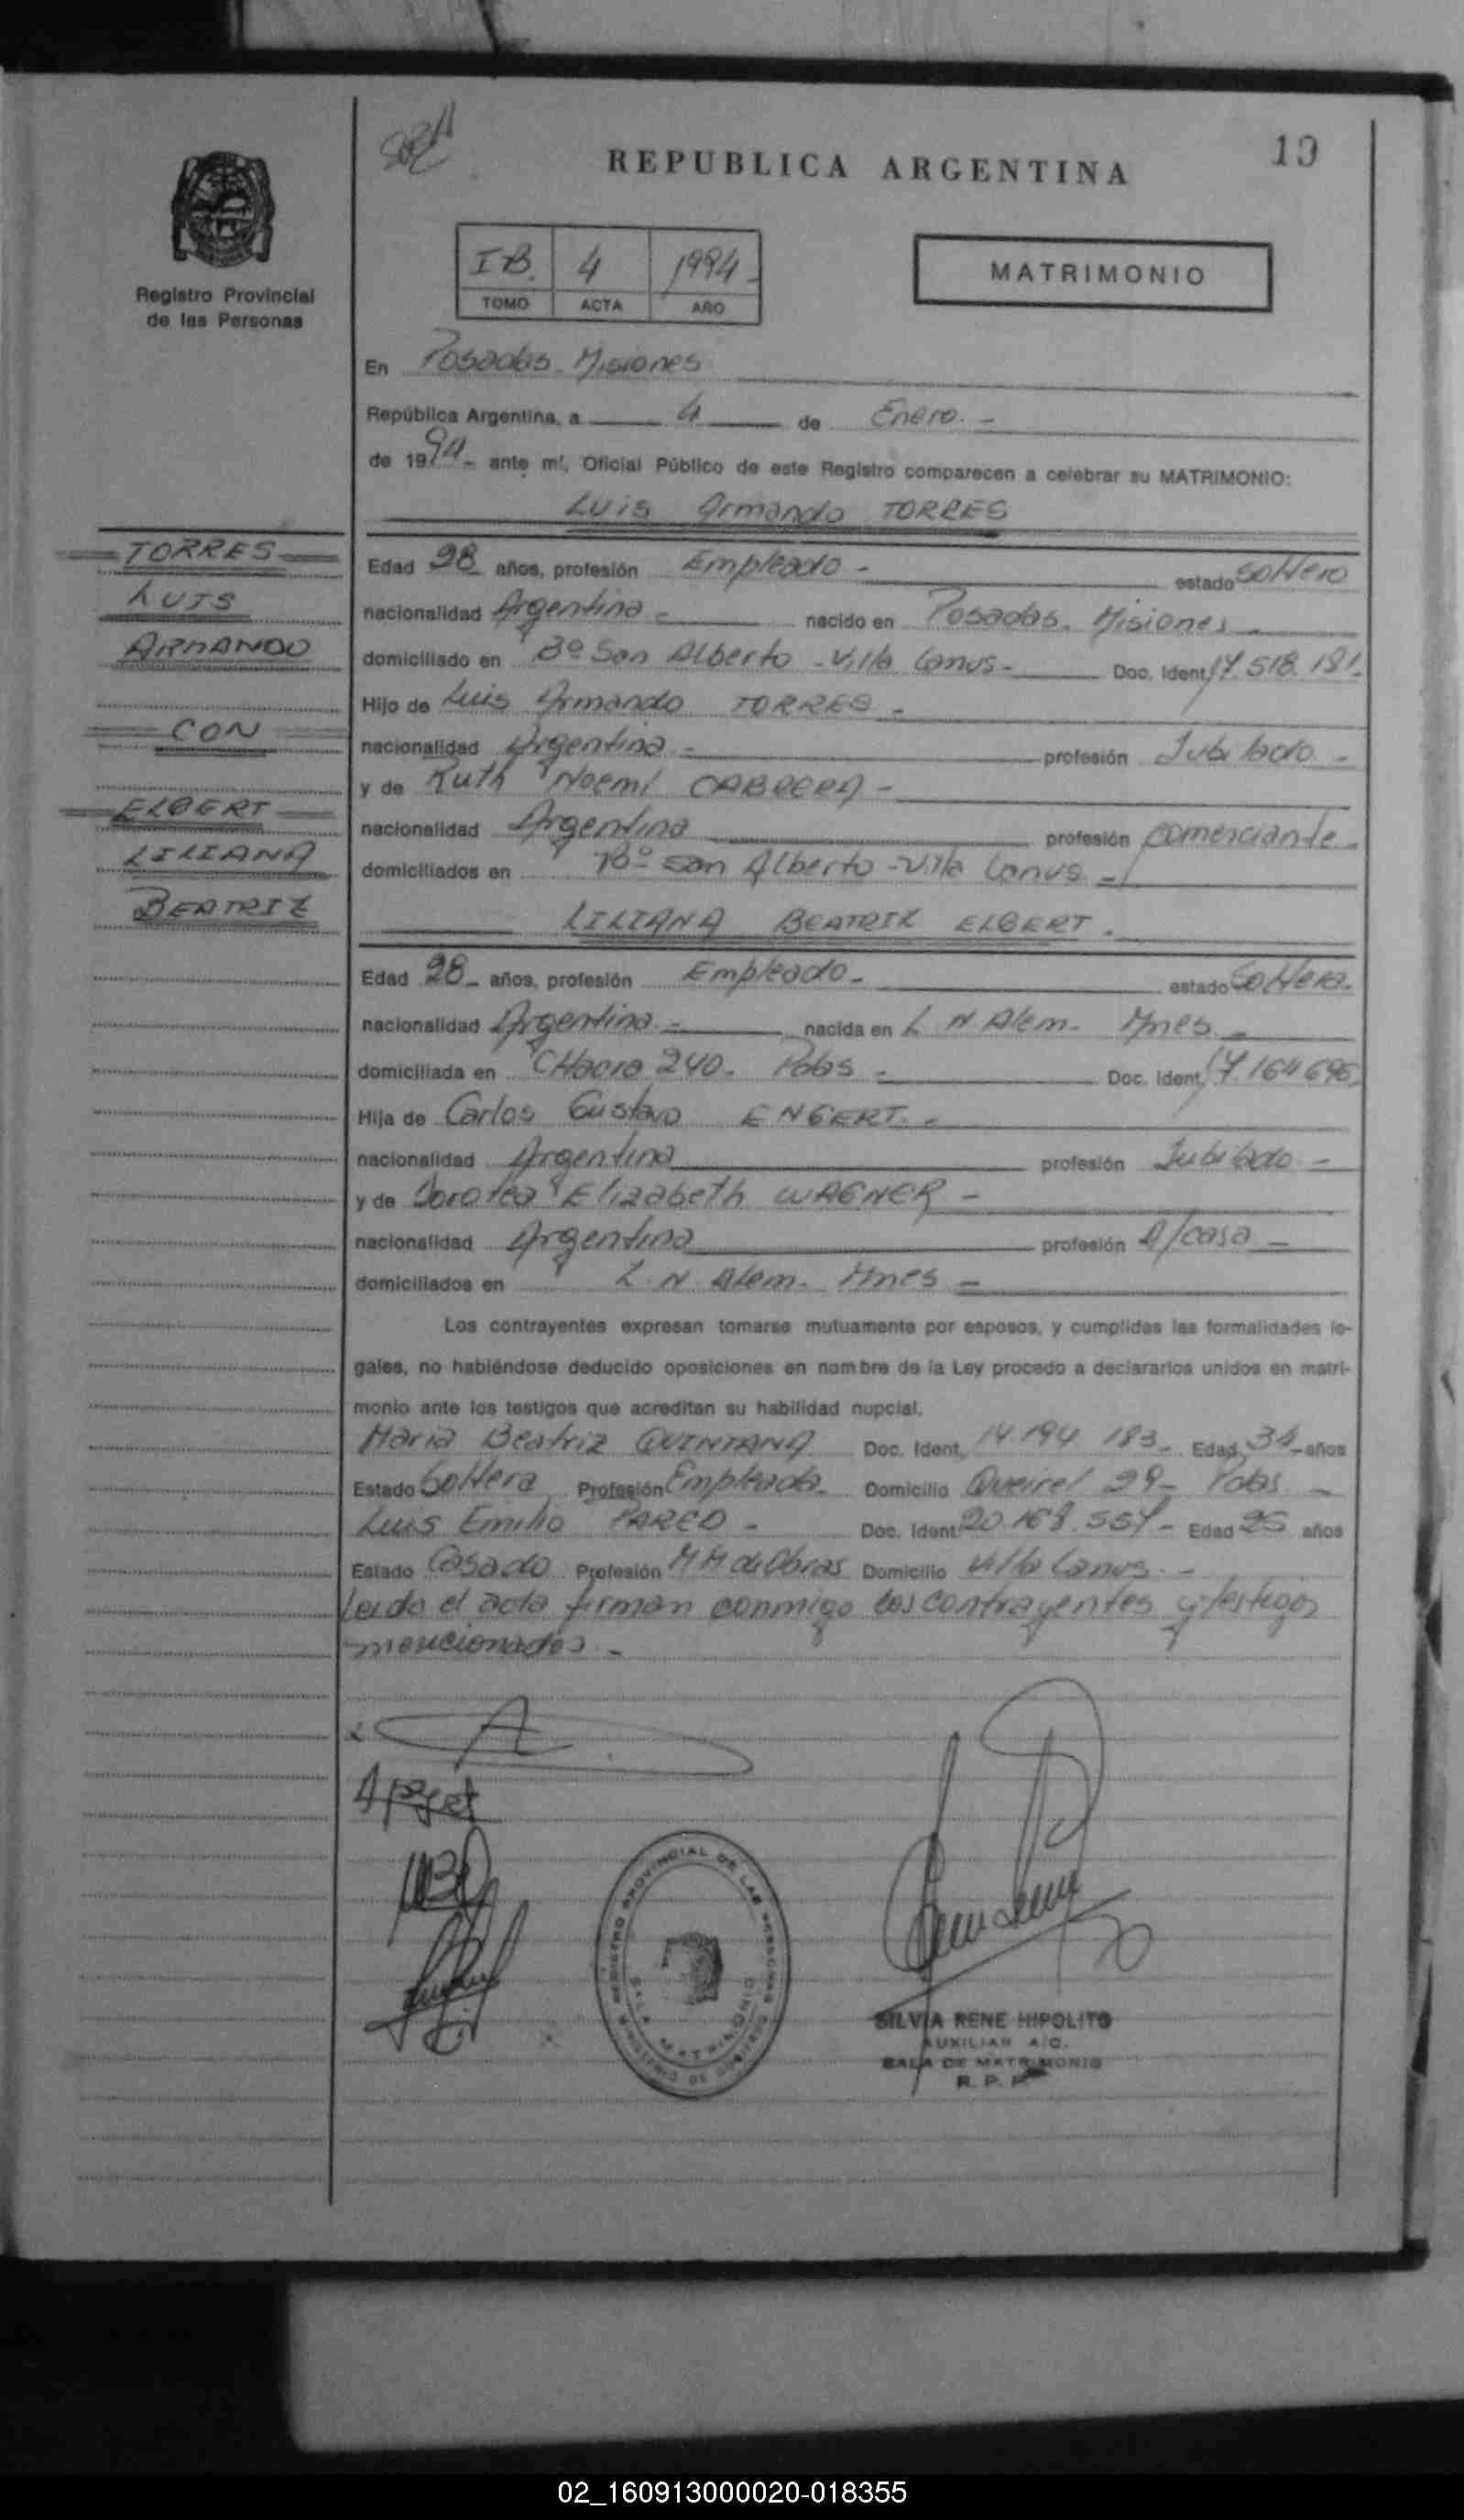 19
REPUBLICA ARGENTINA
Registro Provincial
de las Personas
I B. 4 1994-
TOMO ACTA AÑO
MATRIMONIO
En Posadas - Misiones
República Argentina, a 4 de Enero. -
de 1994 - ante mí, Oficial Público de este Registro comparecen a celebrar su MATRIMONIO:
Luis Armando TORRES
TORRES
LUIS
ARMANDO
CON
ELBERT
LILIANA
BEATRIZ
Edad 28 años, profesión Empleado - estado Soltero
nacionalidad Argentina - nacido en Posadas - Misiones -
domiciliado en Bº San Alberto - Villa Lanus - Doc. Ident. 17.518.181-
Hijo de Luis Armando TORRES -
nacionalidad Argentina - profesión Jubilado -
y de Ruth Noemi CABRERA -
nacionalidad Argentina profesión comerciante -
domiciliados en Bº San Alberto - Villa Lanus -
LILIANA BEATRIZ ELBERT -
Edad 28 - años, profesión Empleado - estado Soltera -
nacionalidad Argentina - nacida en L N Alem - Mnes -
domiciliada en CHacra 240 - Pdas - Doc. Ident. 17.164.696-
Hija de Carlos Gustavo ENGERT. -
nacionalidad Argentina profesión Jubilado -
y de Dorotea Elizabeth WAGNER -
nacionalidad Argentina profesión A/casa -
domiciliados en L. N. Alem - Mnes -
Los contrayentes expresan tomarse mutuamente por esposos, y cumplidas las formalidades le-
gales, no habiéndose deducido oposiciones en nombre de la Ley procedo a declararlos unidos en matri-
monio ante los testigos que acreditan su habilidad nupcial.
Maria Beatriz QUINTANA Doc. Ident. 14 194 183 - Edad 34 - años
Estado Soltera Profesión Empleada - Domicilio Queirel 29 - Pdas -
Luis Emilio - Doc. Ident. 20.168.557 - Edad 25 años
Estado Casado Profesión M M de Obras Domicilio Villa Lanus. -
leida el acta firman conmigo los contrayentes y testigos
mencionados -
REGISTRO PROVINCIAL DE LAS PERSONAS
MINISTERIO DE GOBIERNO
SALA MATRIMONIO
SILVIA RENE HIPOLITO
AUXILIAR A/C.
SALA DE MATRIMONIO
R. P. P.
02_160913000020-018355